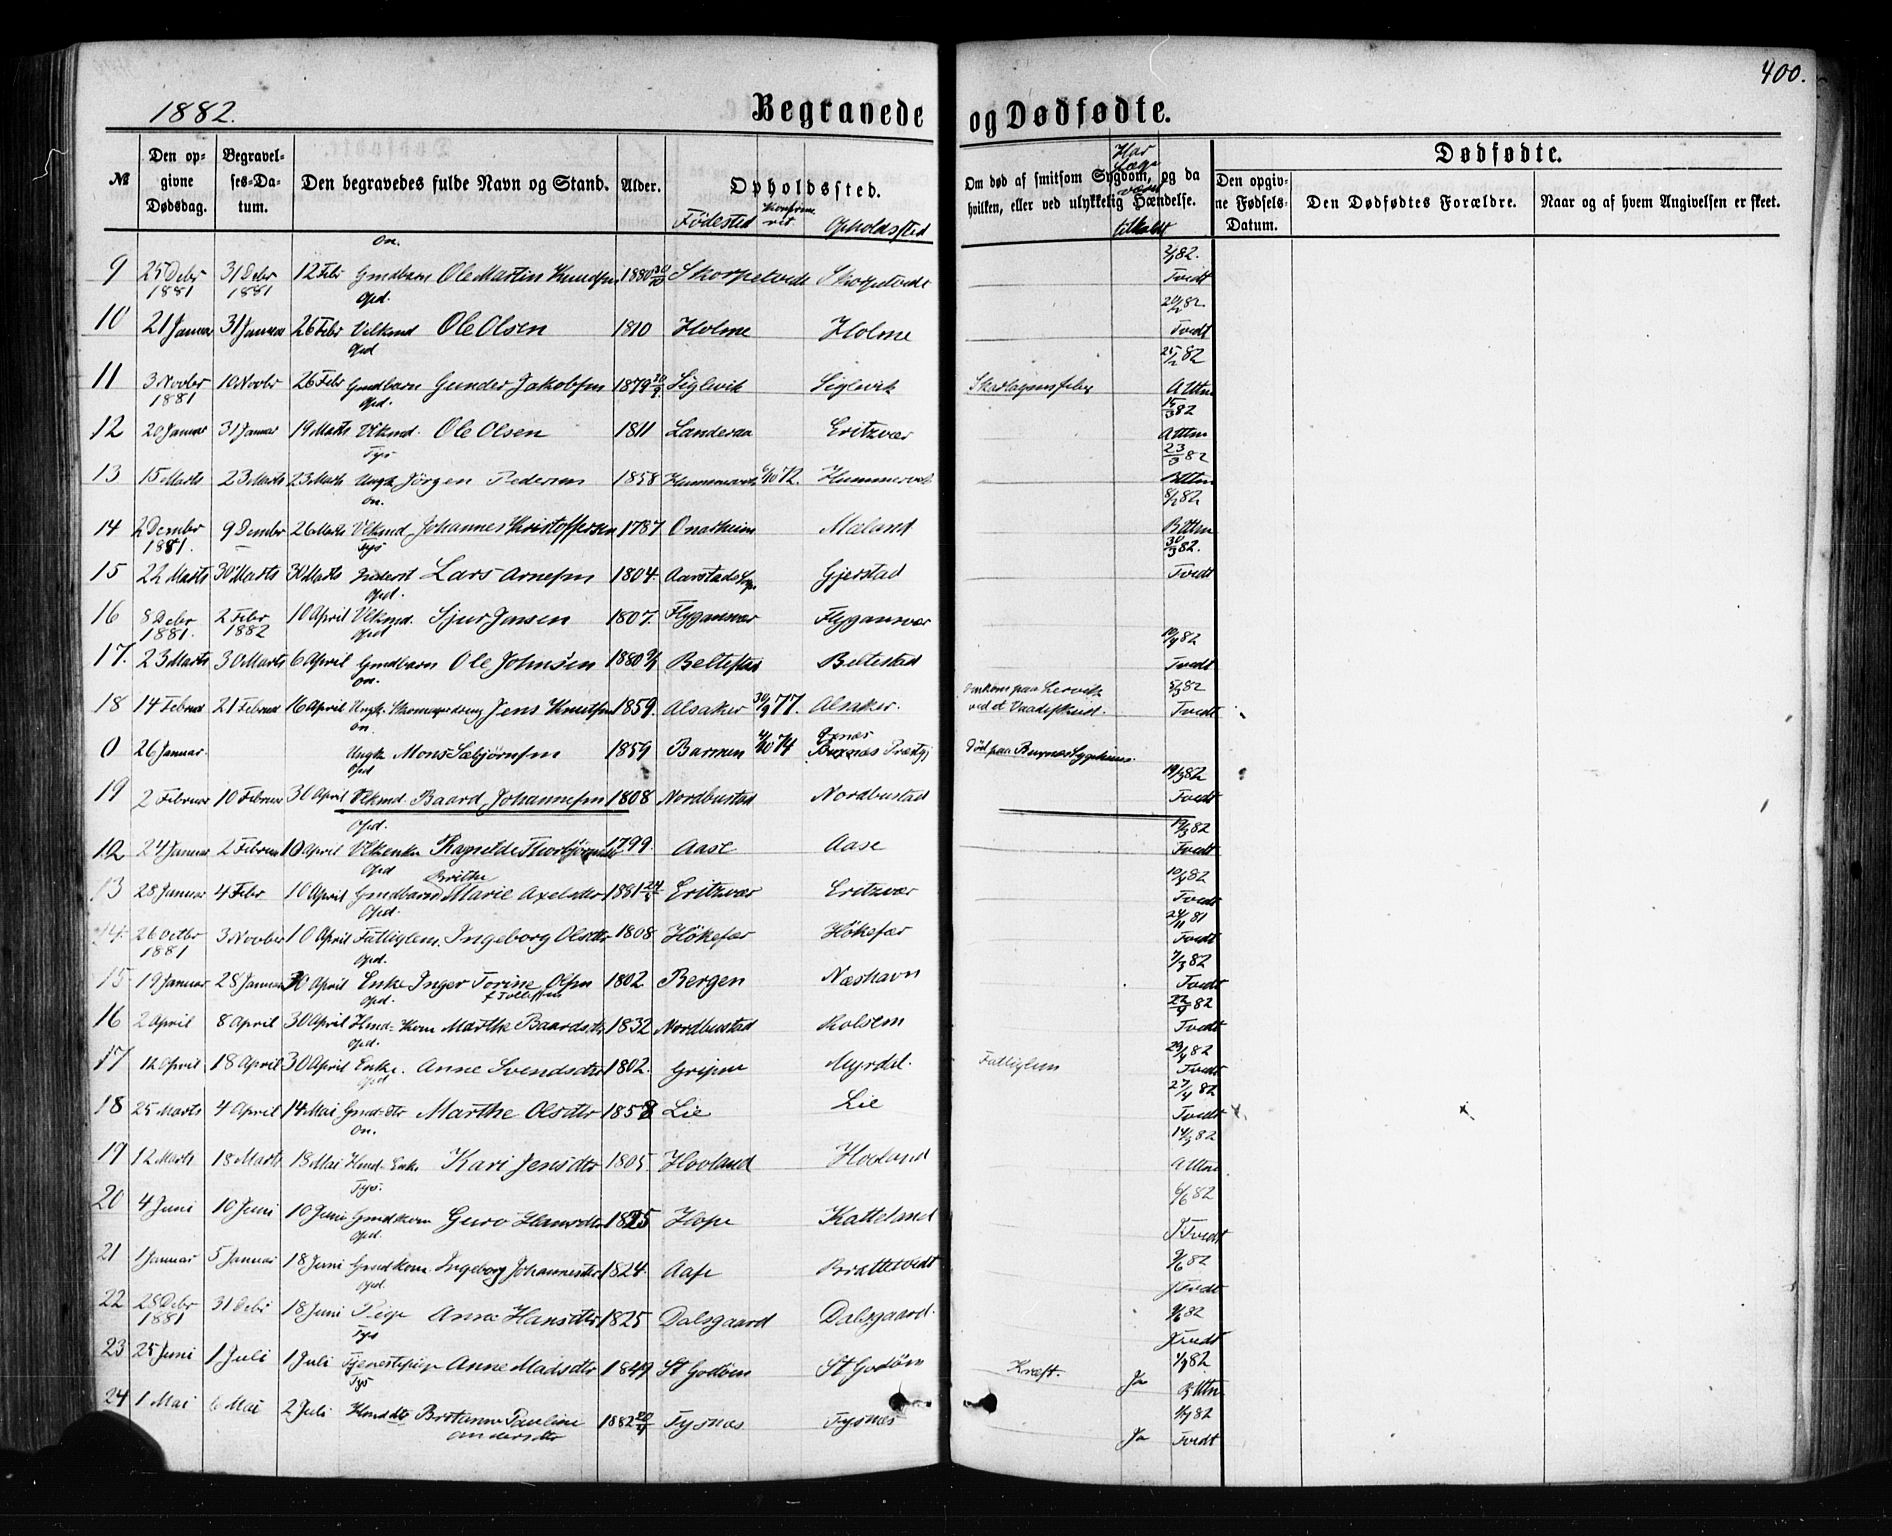 400.
1882.
Begravede og Dødfødte.
№ | Den opgivne Dødsdag. | Begravelses-Datum. | Den begravedes fulde Navn og Stand. | Alder. | Opholdssted. | Om død af smitsom Sygdom, og da hvilken, eller ved ulykkelig Hændelse. | Har Læge været tilkaldt | Dødfødte.
Fødested | Konfirmeret | Opholdssted | Den opgivne Fødsels-Datum. | Den Dødfødtes Forældre. | Naar og af hvem Angivelsen er skeet.
On. 2/1 82.
9 25 Debr 1881 31 Debr 1881 12 Febr Gmdbarn Ole Martin Knudsen 1880 Skorpetvedt Skorpetvedt Tvedt
Opd. 20/2 82
10 21 Januar 31 Januar 26 Febr Vilkmd Ole Olsen 1810 Holme Holme Tvedt
Opd 25/2 82
11 3 Novbr 1881 10 Novbr 26 Febr Gmdbarn Gunder Jakobsen 1879 Siglevik Siglevik Skarlagensfeber
Opd. 15/3 82
12 20 Januar 31 Januar 19 Marts Vlkmd. Ole Olsen 1811 Landeraa Eritzvær
Tys 23/3 82
13 15 Marts 23 Marts 23 Marts Ungk. Jörgen Pedersen 1858 72.
On. 82
14 2 Decmbr 1881. 9 Dembr 26 Marts Vlkmd. Johannes Kristoffersen 1787 Onarheim Mæland
Tys 30/3 82.
15 22 Marts 30 Marts 30 Marts Inderst Lars Arnesen 1804. Gjerstad Tvedt
Opd.
16 8 Debr 1881. 2 Febr 1882 10 April Vlkmd. Sjur Jensen 1807. Flygansvær Flygansvær
Opd 10/4 82
17. 23 Marts 30 Marts 6 April Gmdbarn Ole Johnsen 1880 Beltestad Beltestad Tvedt
On.
18 14 Februar 21 Februar 16 April Ungk. Jens Knutsen 1859. Alsaker 77. Alsaker. Omkom paa Lervik ved et Vaadeskud. Tvedt
On
0 26 Januar. Ungk Mons Sæbjørnsen 1859 Barmen 74 Død paa
Opd 82
19 2 Februar 10 Februar 30 April Vlkmd. Baard Johannesen 1808 Nordbustad Nordbustad Tvedt
Opd. 82
12 24 Januar 2 Februar 10 April Vlkenke Ragnilde 1799. Aase Aase Tvedt
Opd Brithe 10/4 82
13 28 Januar 4 Febr 10 April Gmdbarn Marie Axelsdtr 1881 Eritzvær Eritzvær Tvedt
Opd. 24/11 81
14. 26 Octbr 1881 3 Novber 10 April Fattiglem. Ingeborg Olsdtr 1808 Hökefær Hökefær Tvedt
Opd. 82
15 19 Januar 28 Januar 30 April Enke Inger Torine Olsen f Tollefsen 1802. Bergen Næshavn Tvedt
Opd. 82
16 2 April 8 April 30 April Hmd-Kone Marthe Baardsdtr 1832 Nordbustad Kolsem Tvedt
Opd. 82
17 12 April 18 April 30 April Enke. Anne Svendsdtr 1802. Gripne Myrdal. Fattiglem Tvedt
Opd 27/4 82
18 25 Marts 4 April 14 Mai Gmd-dtr Marthe Olsdtr 1858 Lie Lie Tvedt
On. 14/3 82
19 12 Marts 18 Marts 18 Mai Hmd-Enke Kari Jensdtr 1805. Hovland Hovland
Tys. 6/6 82
20 4 Juni 10 Juni 10 Juni Gmdkone Guro Hansdtr 1825 Hope Katteland Tvedt
Opd. 82
21 1 Januar 5 Januar 18 Juni Gmdkone. Ingeborg Johannesdtr 1824. Aase Brattetvedt Tvedt
Opd. 82
22 28 Debr 1881 31 Debr 18 Juni Pige Anna Hansdtr 1825 Dalsgaard Dalsgaard. Tvedt
Tys 82
23 25 Juni 1 Juli 1 Juli Tjenestepige Anne Madsdtr 1849 St Godöen St Godöen Kræft. Ja
Tys 82
24 1 Mai 6 Mai 2 Juli Hmd dtr Pauline Andersdtr 1882 Tysnæs. Tysnæs Ja Tvedt